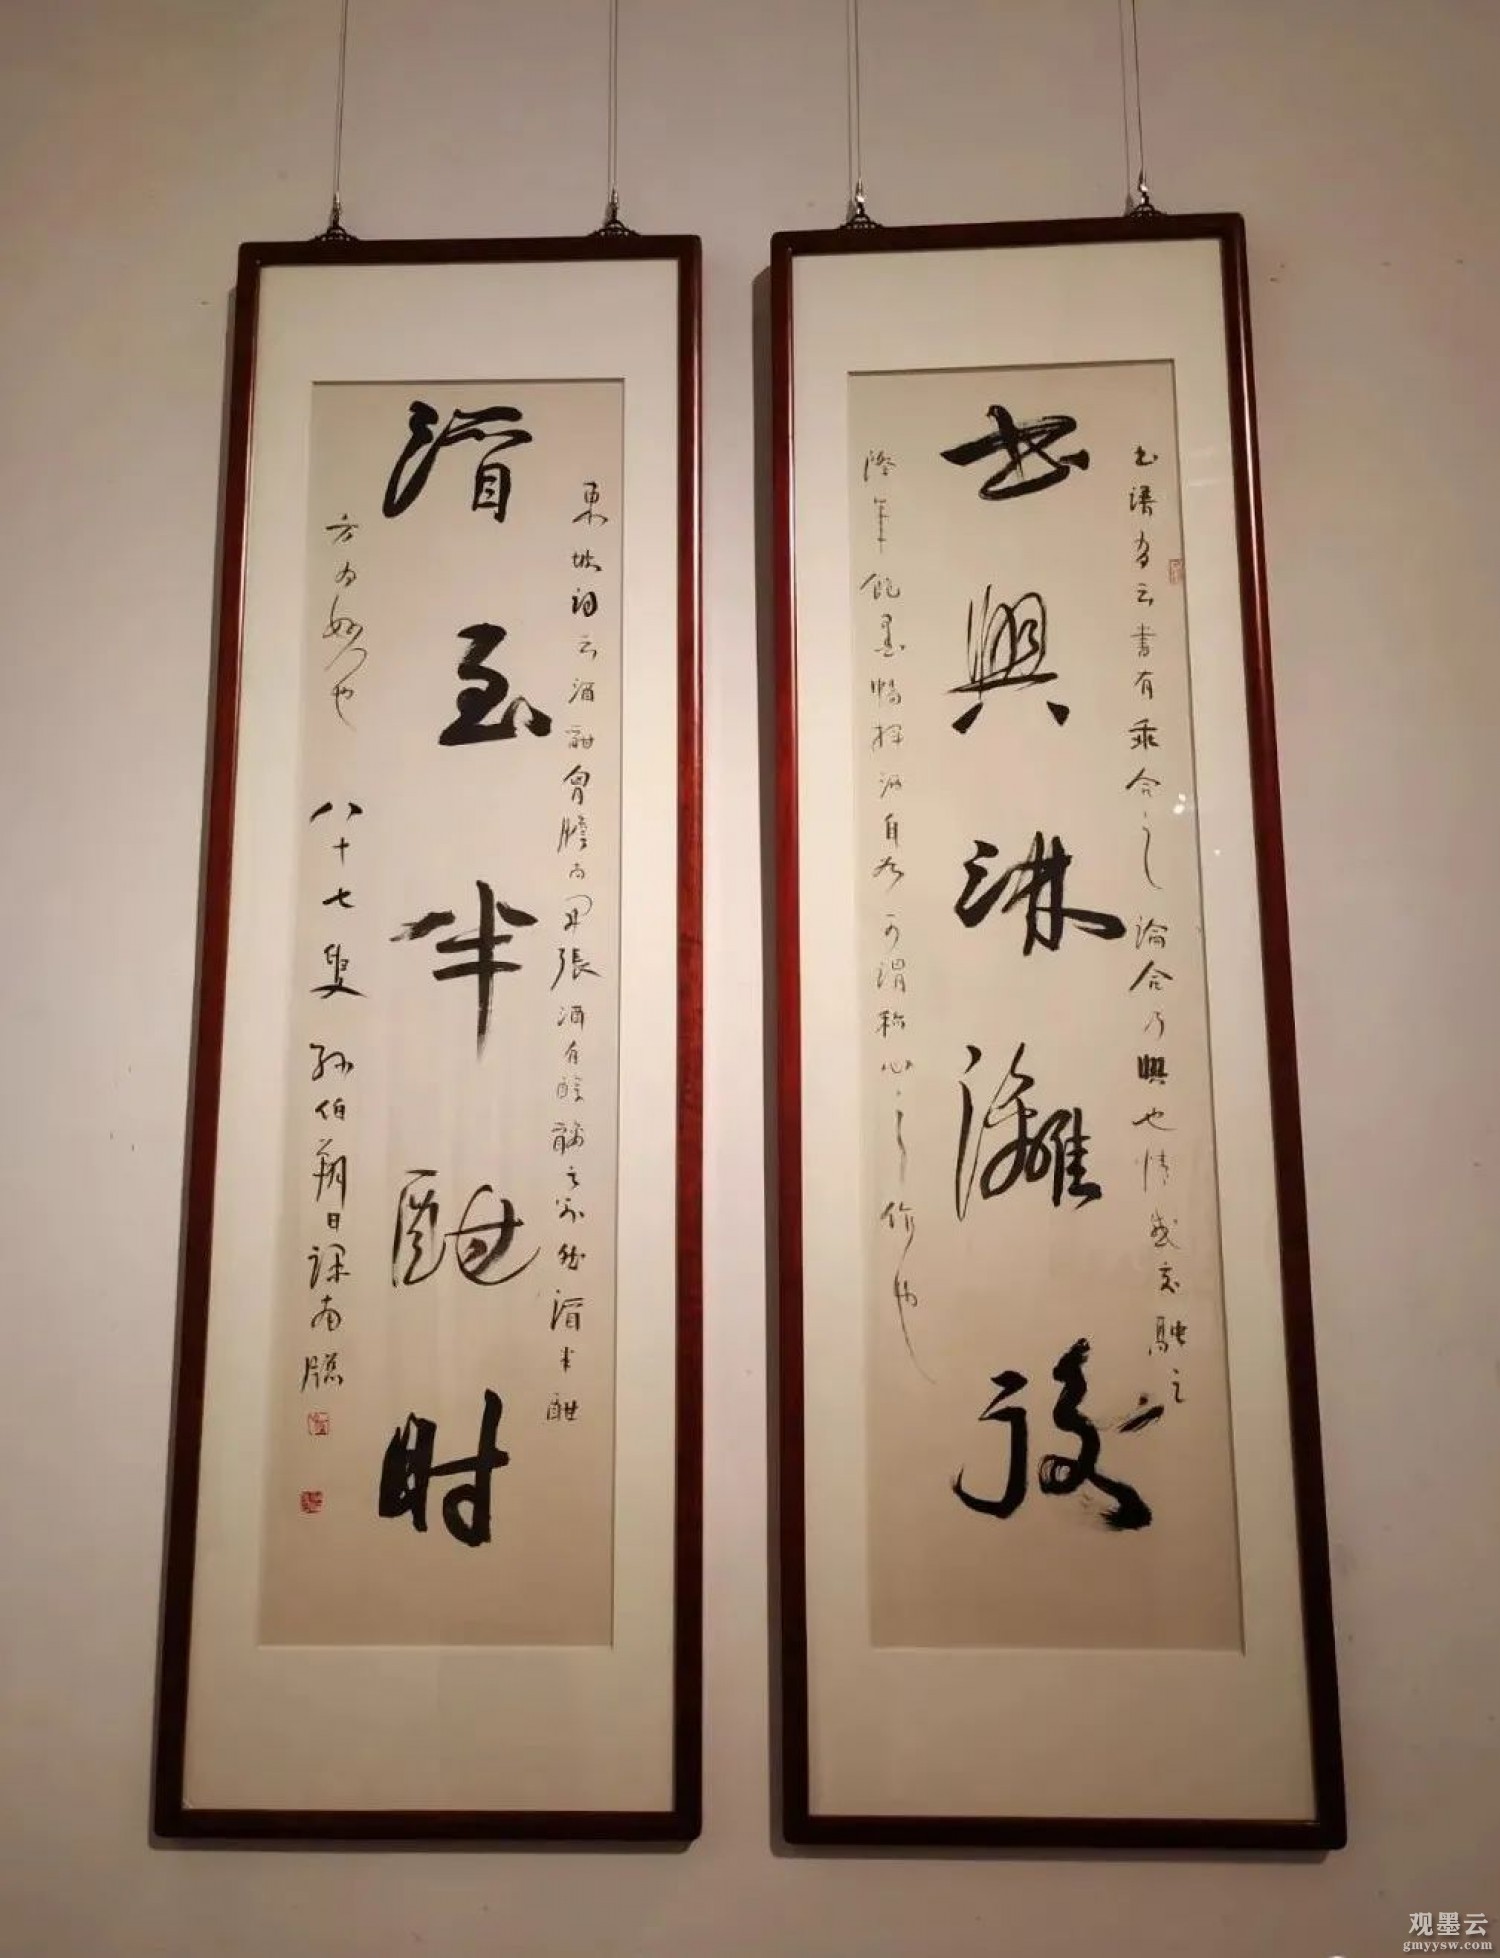 书兴淋灕後
书谱有云书有乖合之论合乃兴也情感交融之
际笔饱墨畅挥洒自然可谓称心之作也
酒至半酣时
东坡词云酒酣胸胆尚开张酒有酩酊之然酒半酣
方为妙也
八十七叟孙伯翔日课南牕
观墨云
gmyysw.com